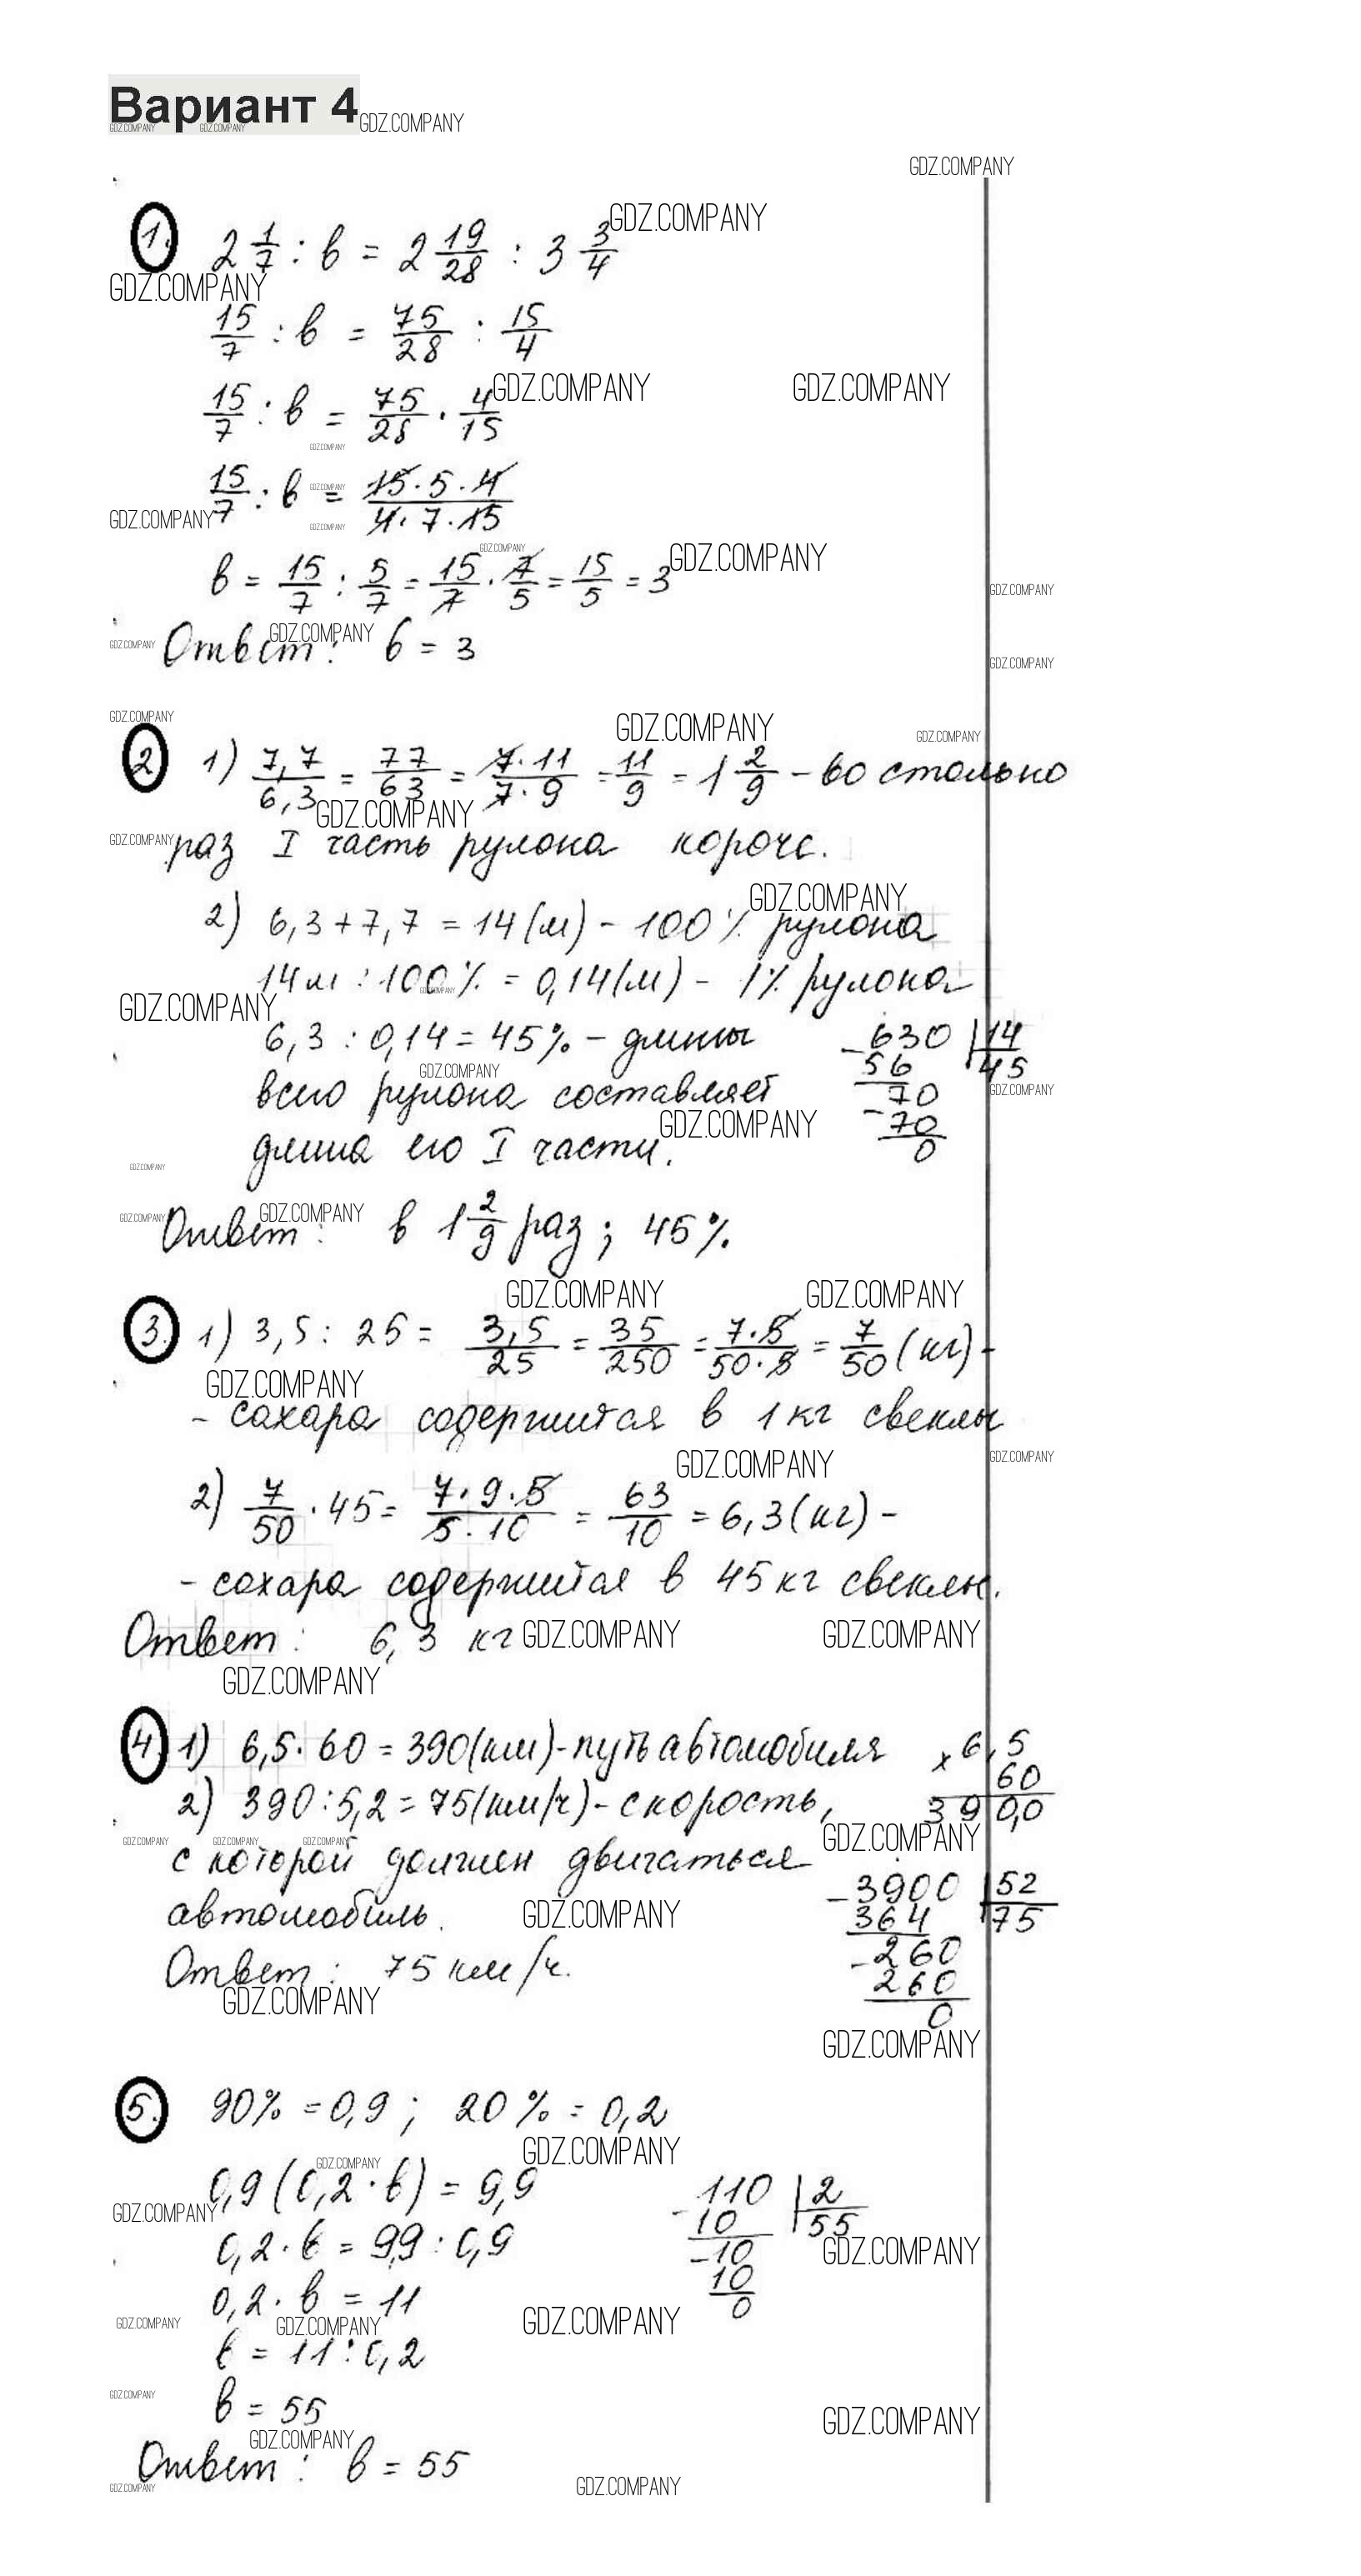 Вариант 4
1. 2 1/7 : в = 2 19/28 : 3 3/4
15/7 : в = 75/28 : 15/4
15/7 : в = 75/28 · 4/15
15/7 : в = 15·5·4/4·7·15
в = 15/7 : 5/7 = 15/7 · 7/5 = 15/5 = 3
Ответ: в = 3
2 1) 7,7/6,3 = 77/63 = 7·11/7·9 = 11/9 = 1 2/9 – во столько
раз I часть рулона короче.
2) 6,3 + 7,7 = 14 (м) – 100% рулона
14м : 100% = 0,14 (м) – 1% рулона
6,3 : 0,14 = 45% – длины
всего рулона составляет
длина его I части.
630 | 14
– 56 45
70
– 70
0
Ответ: в 1 2/9 раз; 45%.
3. 1) 3,5 : 25 = 3,5/25 = 35/250 = 7·5/50·5 = 7/50 (кг) –
– сахара содержится в 1 кг свеклы
2) 7/50 · 45 = 7·9·5/5·10 = 63/10 = 6,3 (кг) –
– сахара содержится в 45 кг свеклы.
Ответ: 6,3 кг
4 1) 6,5 · 60 = 390 (км) – путь автомобиля
2) 390 : 5,2 = 75 (км/ч) – скорость,
с которой должен двигаться
автомобиль.
× 6,5
60
390,0
– 3900 | 52
364 75
– 260
260
0
Ответ: 75 км/ч.
5. 90% = 0,9; 20% = 0,2
0,9 (0,2 · в) = 9,9
0,2 · в = 9,9 : 0,9
0,2 · в = 11
в = 11 : 0,2
в = 55
– 110 | 2
10 55
– 10
10
0
Ответ: в = 55
GDZ.COMPANY